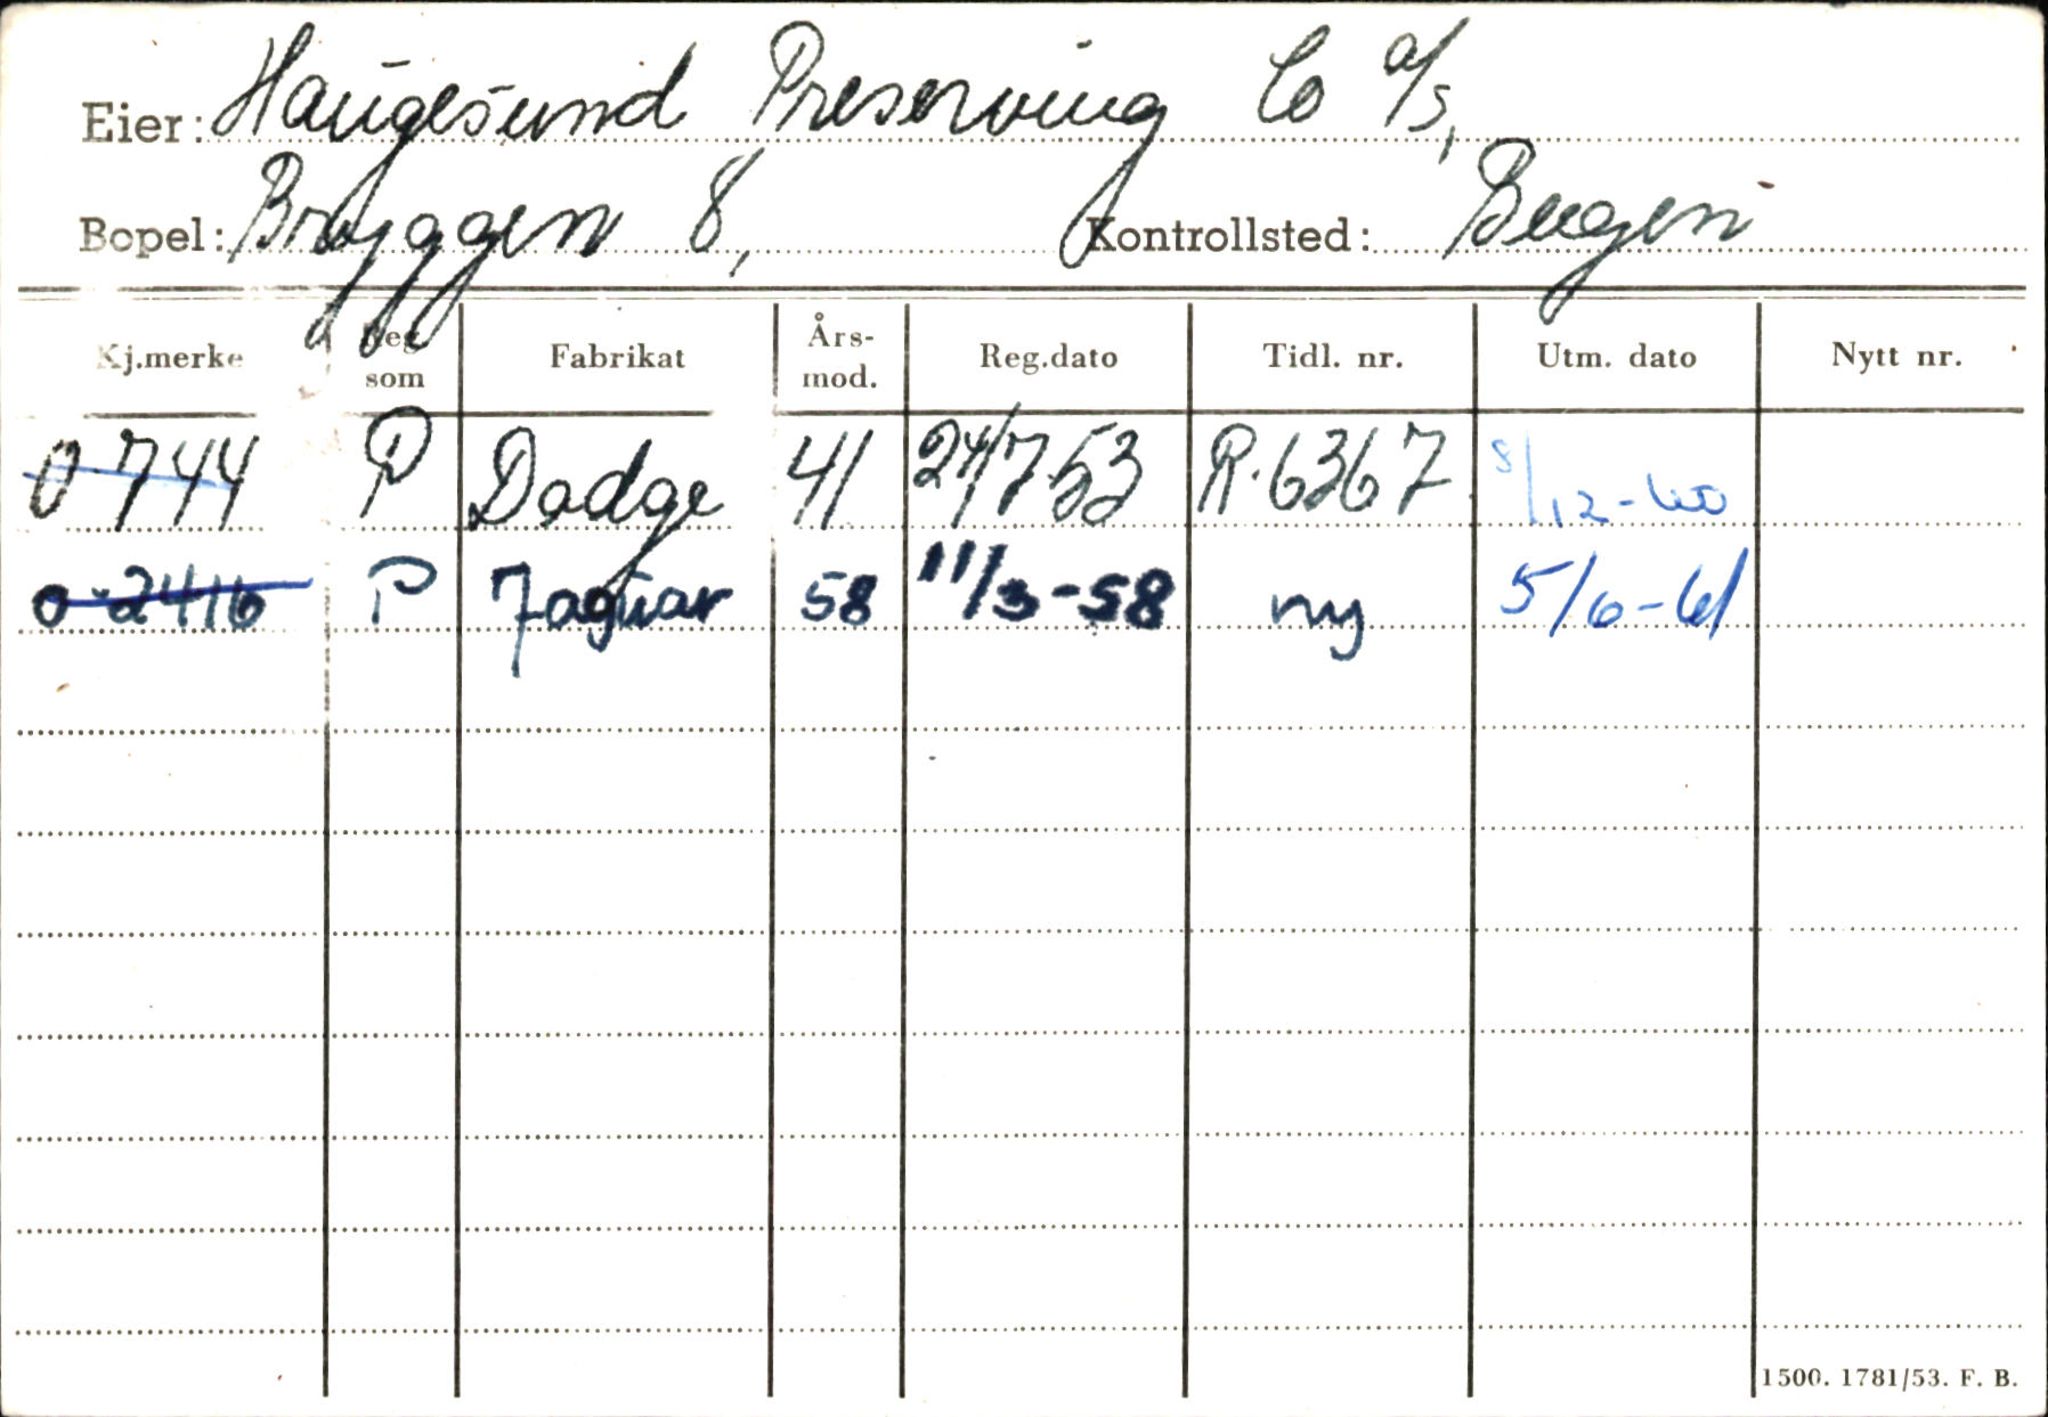 Eier: Haugesund Preserving Co a/s,
Bopel: Bryggen 8, Kontrollsted: Bergen
Kj.merke Reg. som Fabrikat Års-mod. Reg.dato Tidl. nr. Utm. dato Nytt nr.
O 744 P Dodge 41 24/7-53 R-6367 8/12-60
O-2416 P Jaguar 58 11/3-58 ny 5/6-61
1500. 1781/53. F. B.